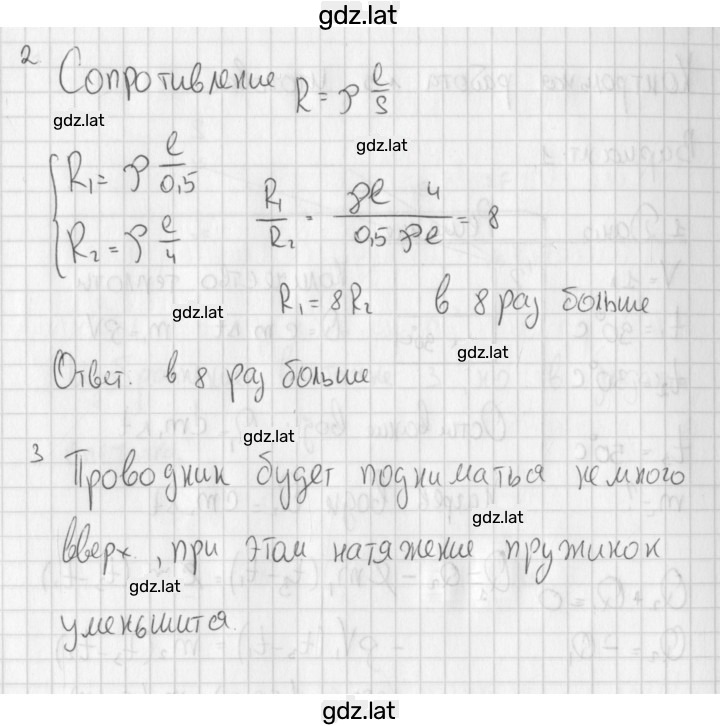 gdz.lat
2 Сопротивление R = ρ l/S
gdz.lat
gdz.lat
R₁ = ρ l/0,5
R₂ = ρ l/4
R₁/R₂ = ρl 4/0,5 ρl = 8
gdz.lat
R₁ = 8R₂ в 8 раз больше
gdz.lat
Ответ. в 8 раз больше
gdz.lat
3 Проводник будет подниматься немного
gdz.lat
вверх, при этом натяжение пружинок
gdz.lat
уменьшится.
gdz.lat